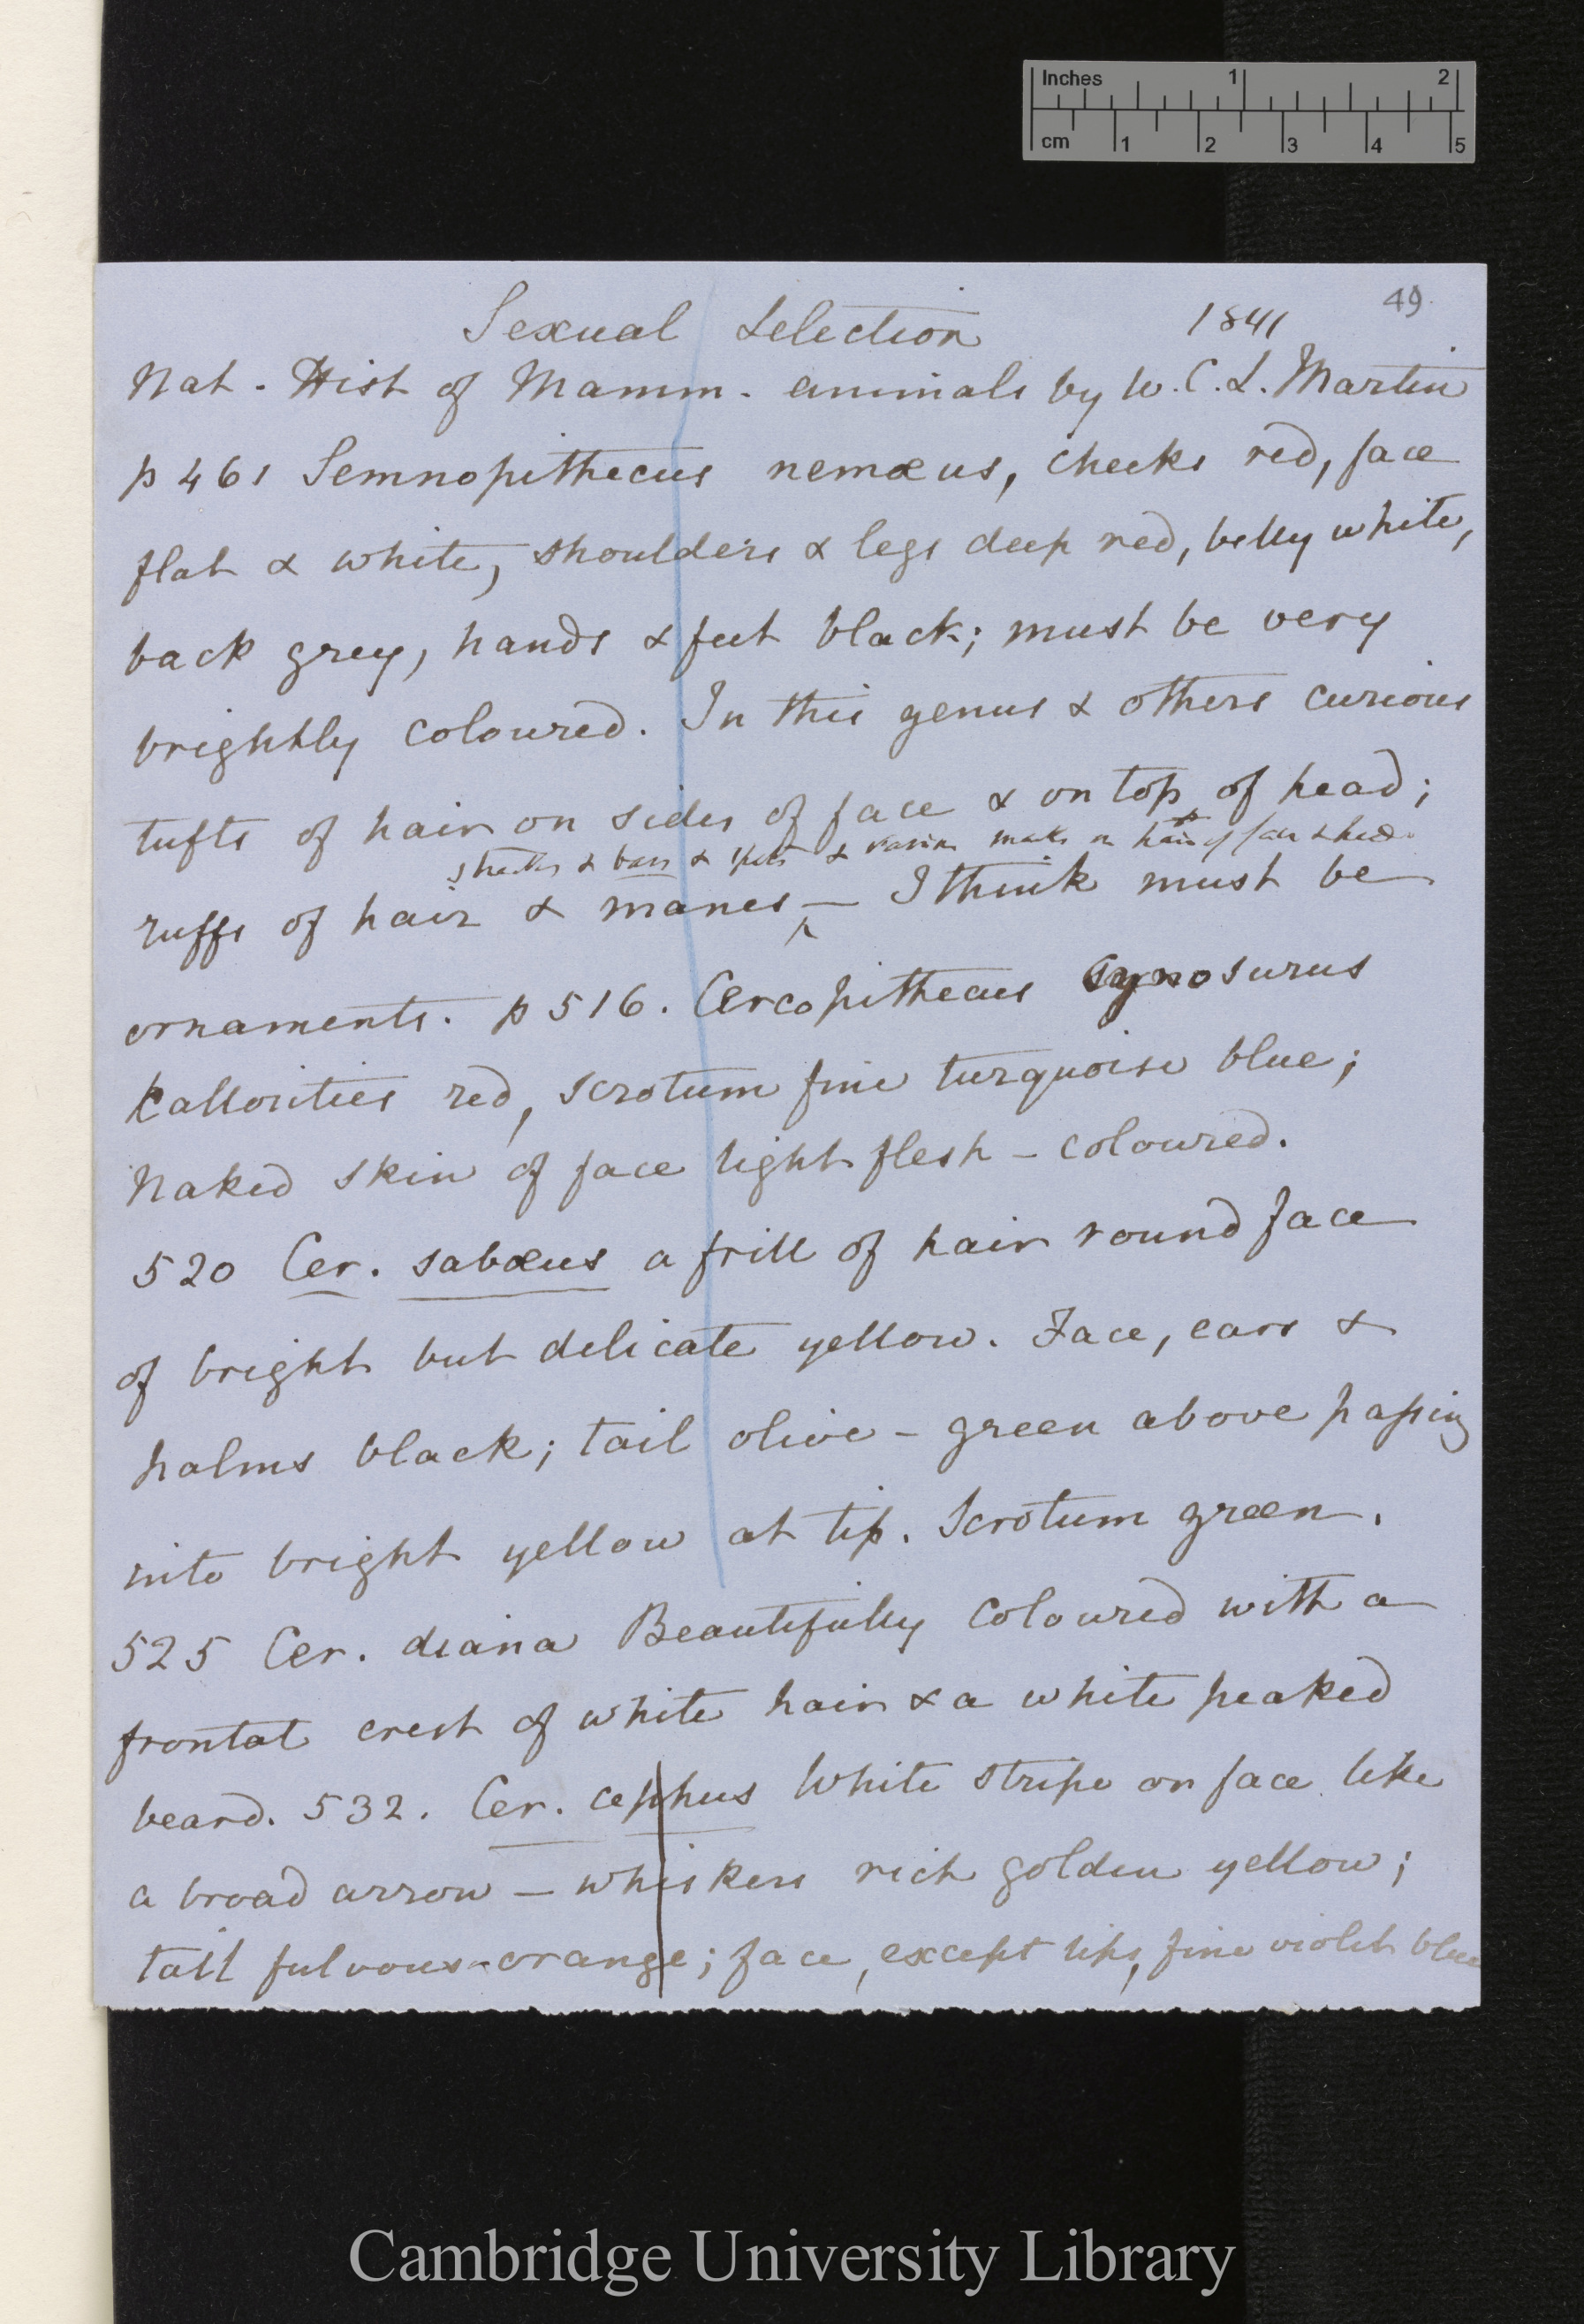 Inches 1 2
cm 1 2 3 4 5
49
Sexual Selection 1841
Nat. Hist of Mamm. animals by W. C. L. Martin
p 461 Semnopithecus nemæus, cheeks red, face
flat & white, shoulders & legs deep red, belly white,
back grey, hands & feet black; must be very
brightly coloured. In this genus & others curious
tufts of hair on sides of face & on top of head;
streaks & bars & spots & various marks on hair of face & head
ruffs of hair & manes — I think must be
ornaments. p 516. Cercopithecus Cynosurus
Callosities red, scrotum fine turquoise blue;
naked skin of face light flesh-coloured.
520 Cer. sabæus a frill of hair round face
of bright but delicate yellow. Face, ears &
palms black; tail olive-green above passing
into bright yellow at tip. Scrotum green.
525 Cer. diana Beautifully coloured with a
frontal crest of white hair & a white peaked
beard. 532. Cer. cephus White stripe on face like
a broad arrow — whiskers rich golden yellow;
tail fulvous-orange; face, except lips, fine violet blue
Cambridge University Library